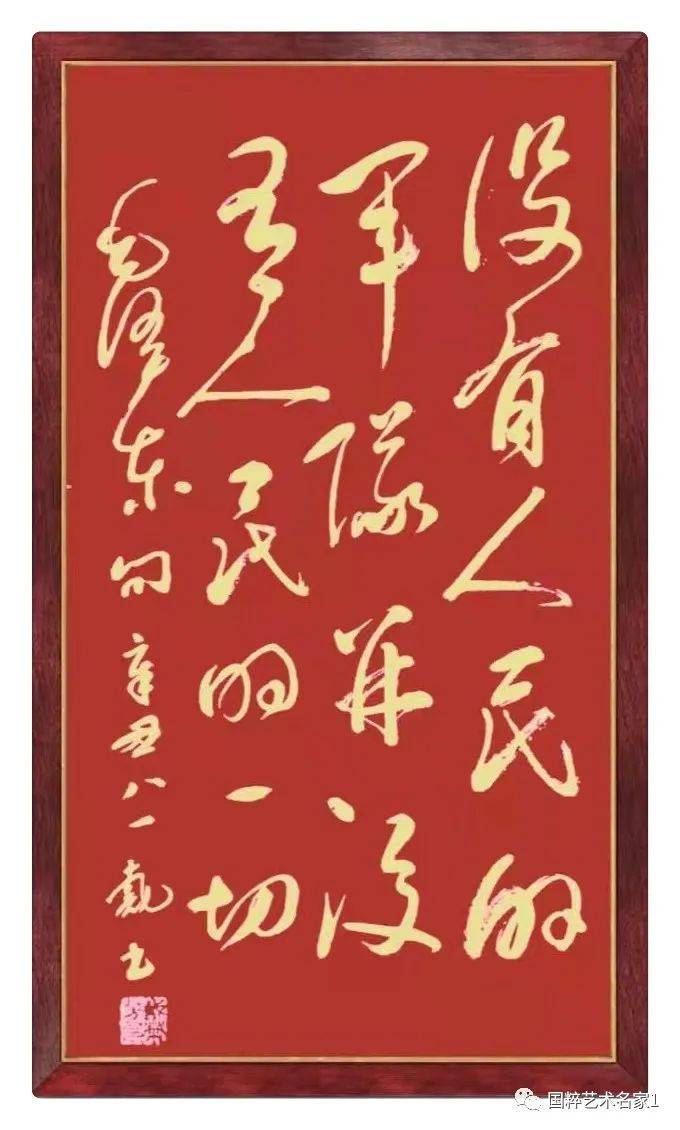 没有人民的
军队并没
有人民的一切
毛泽东句 辛丑八一 书
国粹艺术名家1